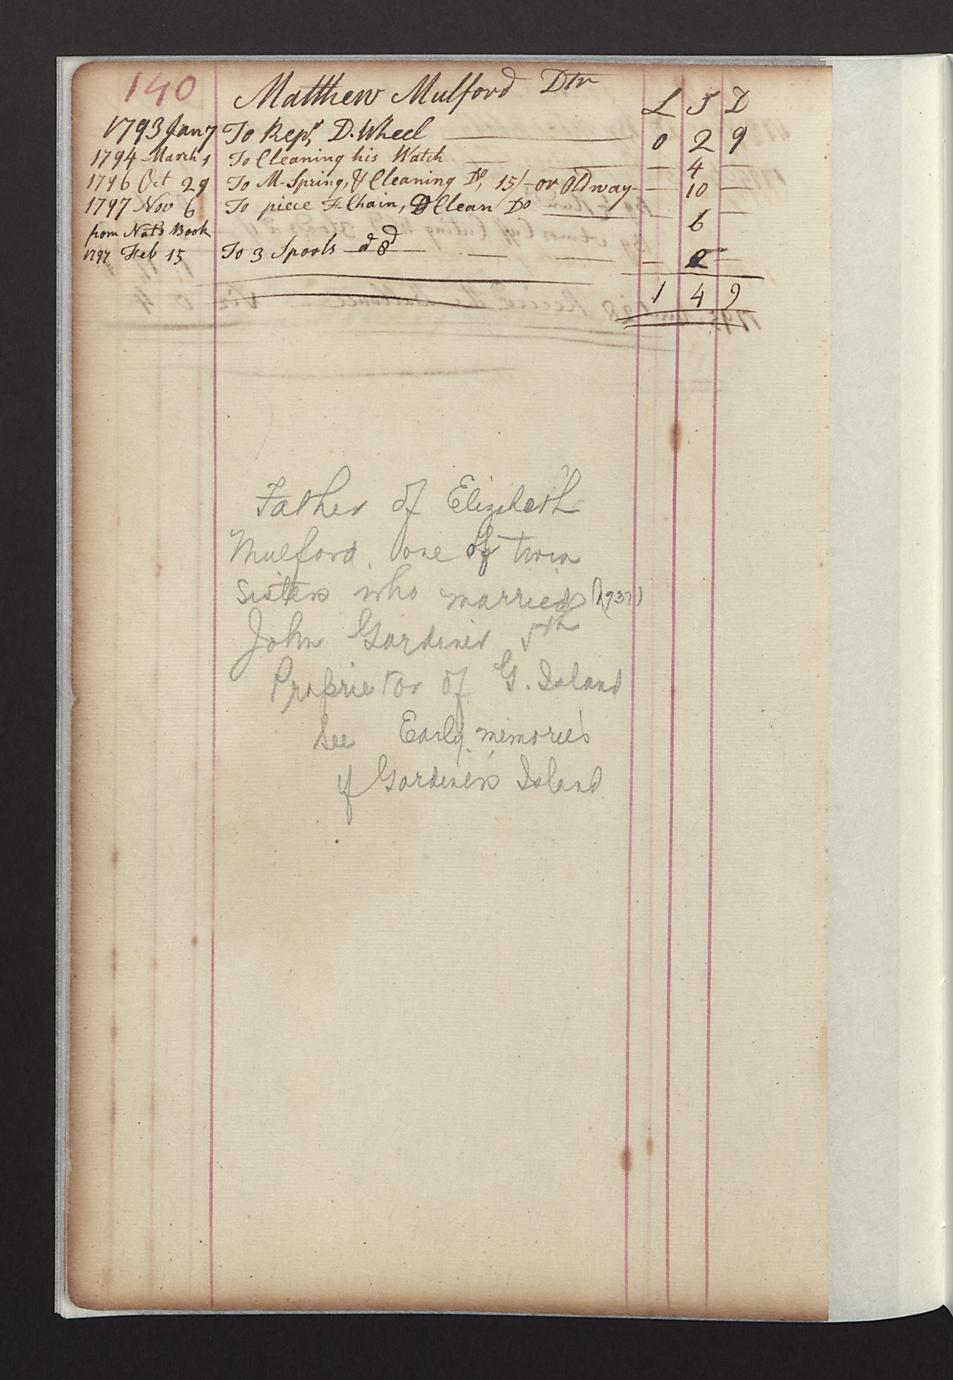 140 Matthew Mulford Dtr £ S D
1793 Jan 7 To Repg D. Wheel 0 2 9
1794 March 1 To Cleaning his Watch — 4 —
1796 Oct 29 To M-Spring, & Cleaning Do, 15/- or Old way — 10 —
1797 Nov 6 To piece F. Chain, & Clean Do 6 —
from Nat's Book
1797 Feb 15 To 3 Spools d 8d — 2 —
1 4 9
Father of Elizabeth
Mulford. one of twin
sisters who married
John Gardiner 5th
Proprietor of G. Island
See Early memories
of Gardiner's Island